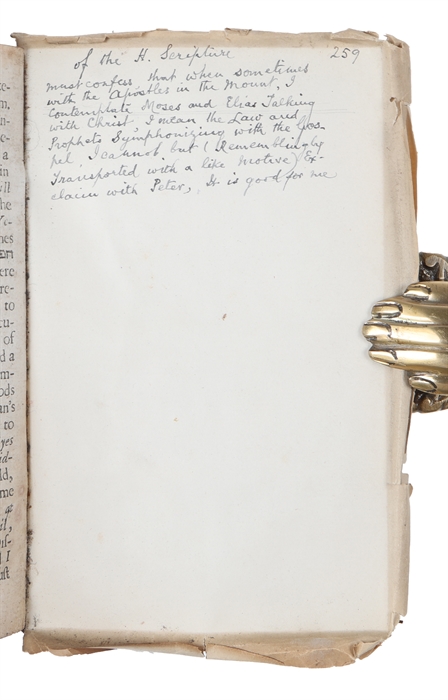 of the H. Scripture 259
must confess that when sometimes
with the Apostles in the Mount, I
contemplate Moses and Elias Talking
with Christ I mean the Law and
Prophets Symphonizing with the Gos-
pel, I cannot but (Resemblingly
Transported with a like motive) Ex-
claim with Peter, It is good for me
in
ill
he
nes
ere
re-
to
tu-
of
d a
m-
ods
an's
to
yes
id-
ld,
me
il,
I
ust